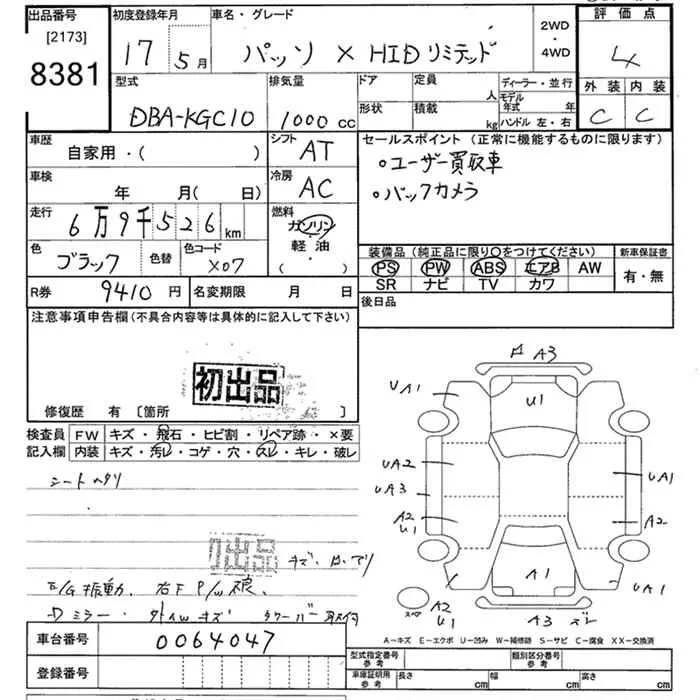 出品番号
[2173]
8381
初度登録年月
17 5月
車名・グレード
パッソ X HIDリミテッド
2WD
・
4WD
評価点
4
外装 内装
C C
型式
DBA-KGC10
排気量
1000 cc
ドア
定員 人
形状
積載 kg
ディーラー・並行
モデル年式 年
ハンドル 左・右
車歴
自家用・( )
シフト
AT
車検
年 月( 日)
冷房
AC
走行
6万9千526 km
燃料
ガソリン
軽・油
・( )
色
ブラック
色替
色コード
X07
R券 9410 円
名変期限 月 日
セールスポイント (正常に機能するものに限ります)
○ユーザー買取車
○バックカメラ
装備品(純正品に限り○をつけてください)
PS PW ABS エアB AW
SR ナビ TV カワ
新車保証書
有・無
後日品
注意事項申告欄(不具合内容等は具体的に記入して下さい)
初出品
修復歴 有 [箇所 ]
検査員
記入欄
FW キズ・飛石・ヒビ割・リペア跡・×要
内装 キズ・汚レ・コゲ・穴・スレ・キレ・破レ
シートヘタリ
初出品
E/G振動. 右F P/W
Dミラー・ キズ タワーバー取付
車台番号 0064047
登録番号
A3
UA1
U1
UA2
UA3
A2
U1
UA1
A2
A1
UA1
スペア
A2
U1
A3
A-キズ E-エクボ U-凹み W-補修跡 S-サビ C-腐食 XX-交換済
型式指定番号
参考
類別区分番号
参考
車庫証明用
参考
長さ cm
幅 cm
高さ cm